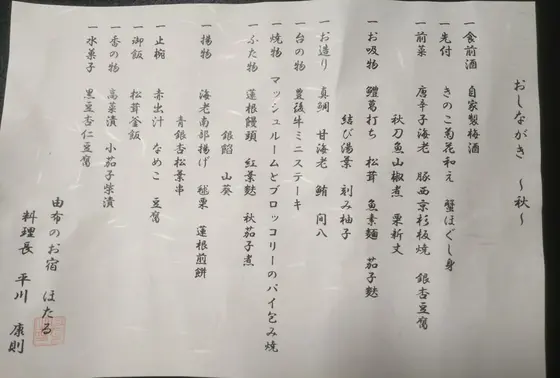 おしながき ～秋～
一食前酒 自家製梅酒
一先付 きのこ菊花和え 蟹ほぐし身
一前菜 唐辛子海老 豚西京杉板焼 銀杏豆腐
秋刀魚山椒煮 栗新丈
一お吸物 鱧葛打ち 松茸 魚素麺 茄子麩
結び湯葉 刻み柚子
一お造り 真鯛 甘海老 鮪 間八
一台の物 豊後牛ミニステーキ
一焼物 マッシュルームとブロッコリーのパイ包み焼
一ふた物 蓮根饅頭 紅葉麩 秋茄子煮
銀餡 山葵
一揚物 海老南部揚げ 毬栗 蓮根煎餅
青銀杏松葉串
一止椀 赤出汁 なめこ 豆腐
一御飯 松茸釜飯
一香の物 高菜漬 小茄子柴漬
一水菓子 黒豆杏仁豆腐
由布のお宿 ほたる
料理長 平川 康則